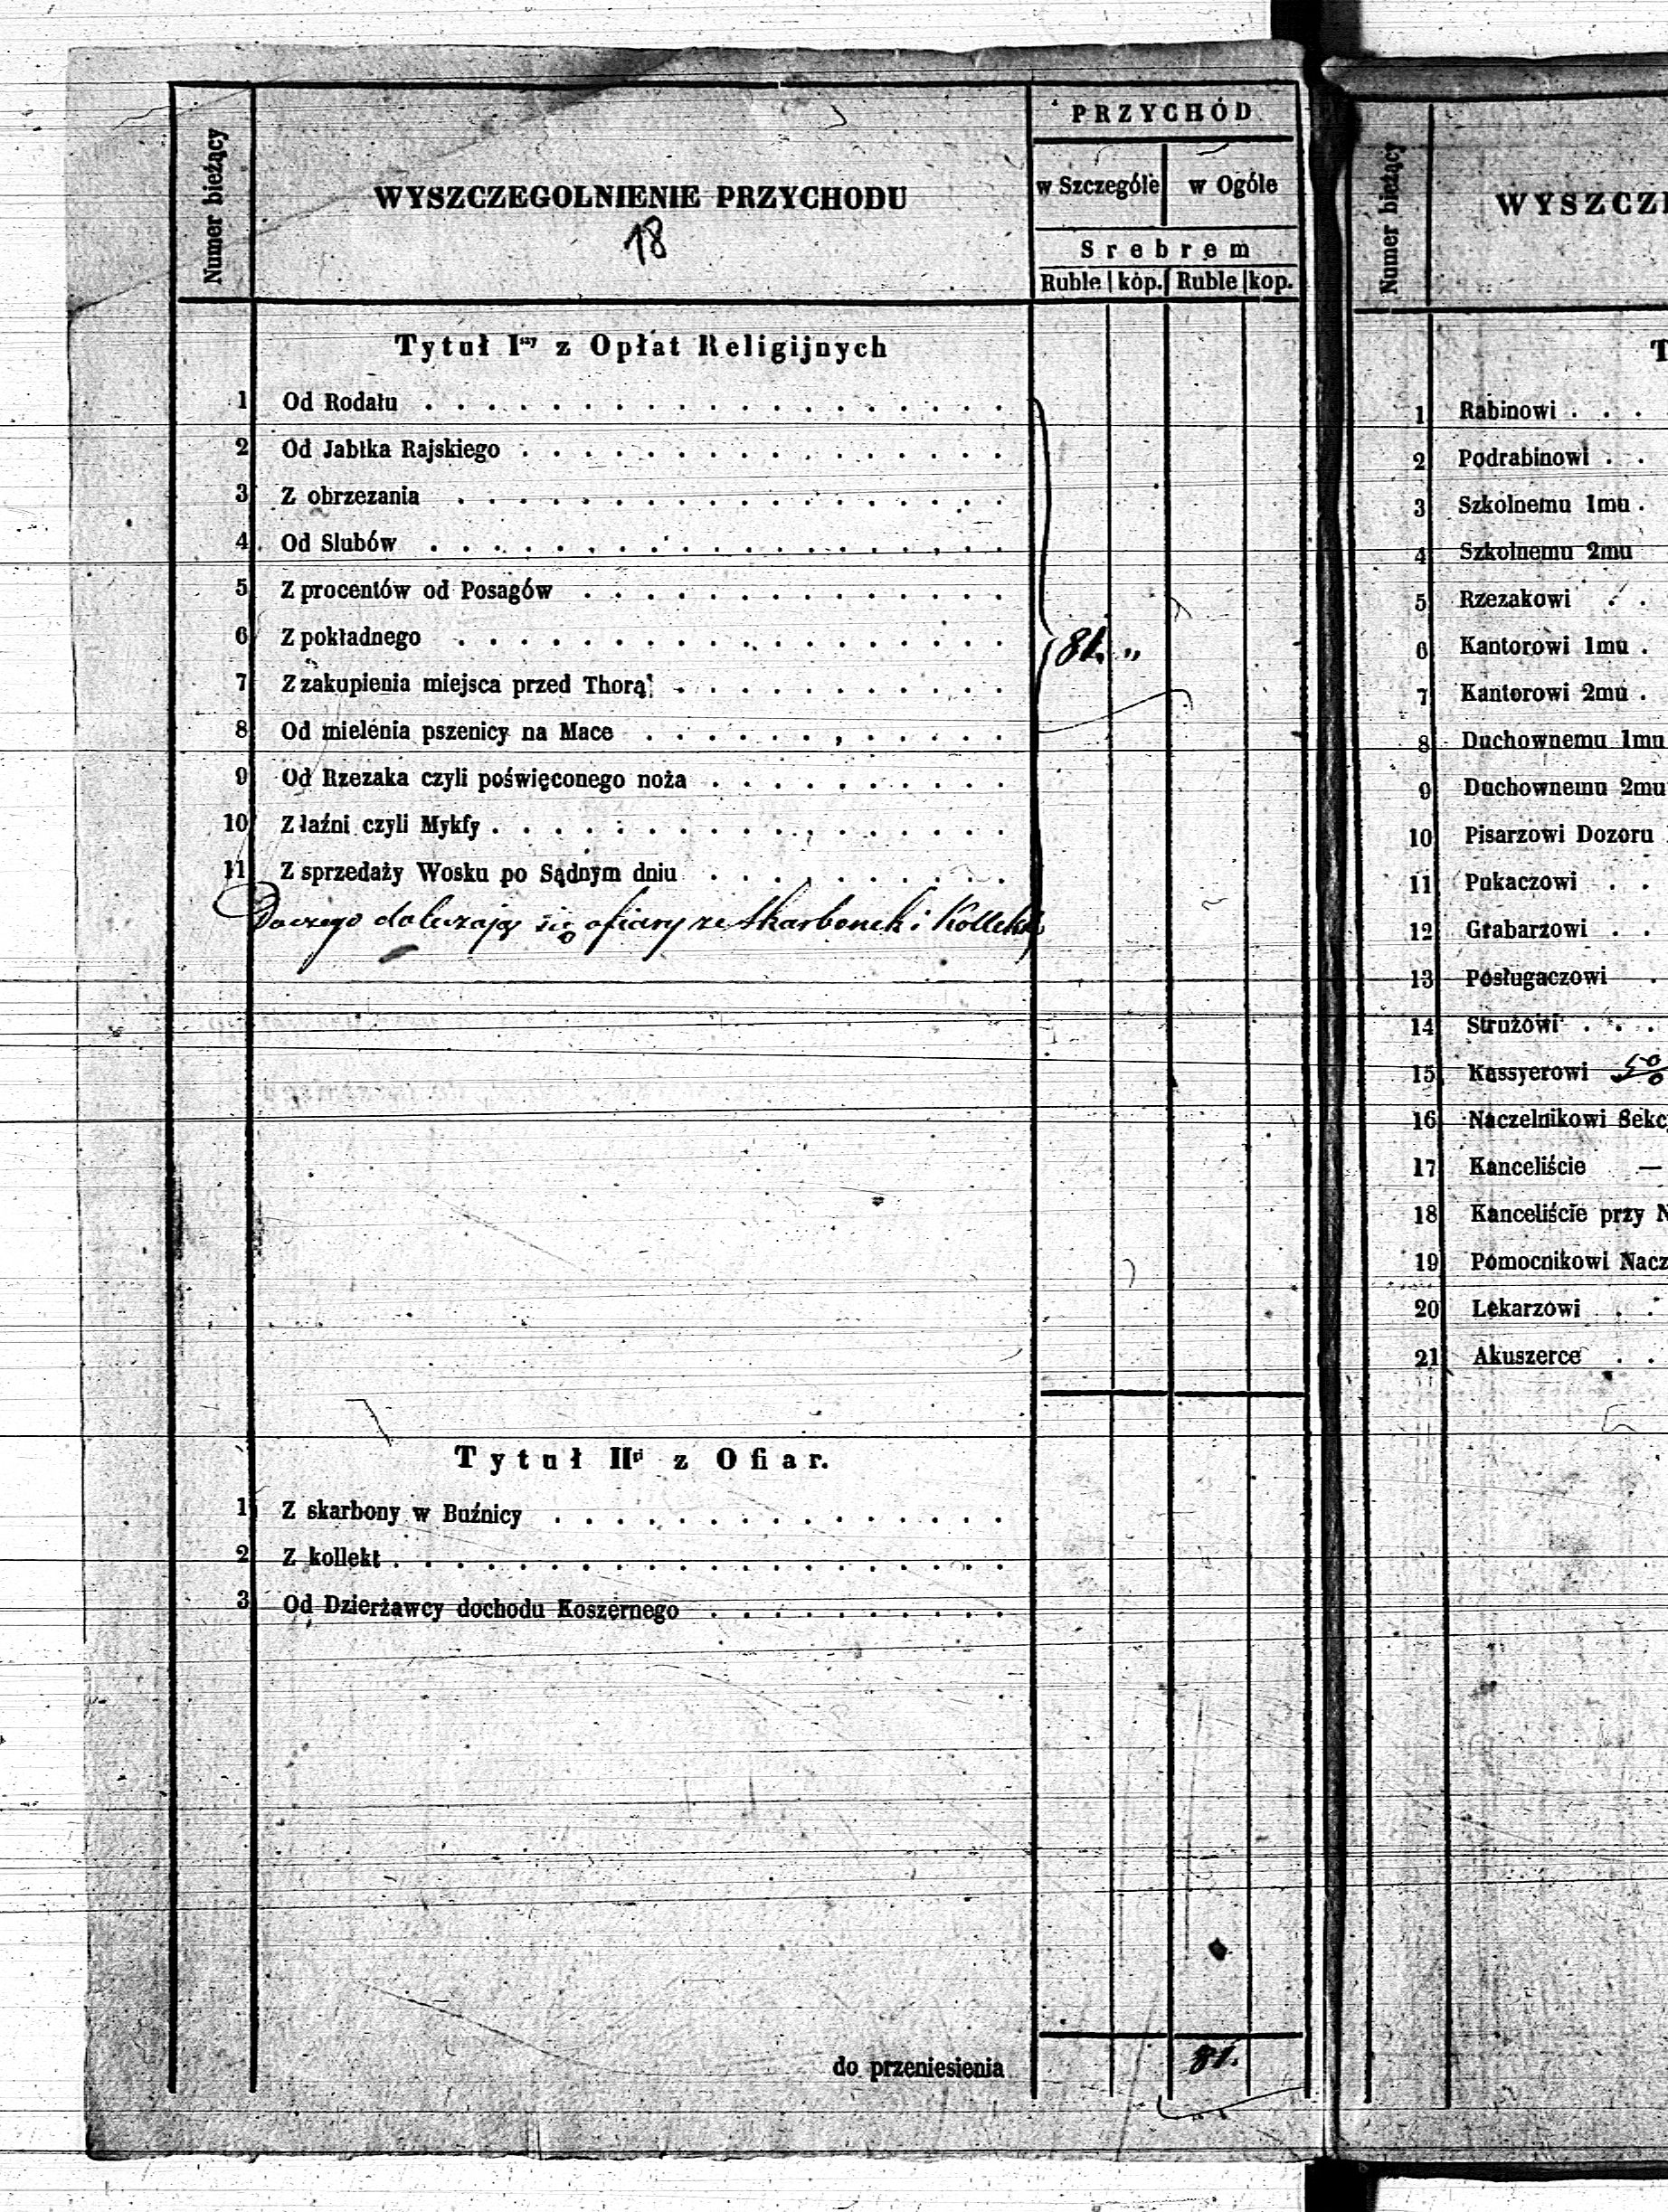 Numer bieżący
WYSZCZEGOLNIENIE PRZYCHODU
18
PRZYCHÓD
w Szczególe w Ogóle
Srebrem
Ruble kop. Ruble kop.
Tytuł Iszy z Opłat Religijnych
1 Od Rodału
2 Od Jabłka Rajskiego
3 Z obrzezania
4 Od Slubów
5 Z procentów od Posagów
6 Z pokładnego
81. „
7 Z zakupienia miejsca przed Thorą
8 Od mielenia pszenicy na Mace
9 Od Rzezaka czyli poświęconego noża
10 Z łaźni czyli Mykfy
11 Z sprzedaży Wosku po Sądnym dniu
Do czego doliczają się ofiary ze skarbonek i Kollekt
Tytuł IIgi z Ofiar.
1 Z skarbony w Buźnicy
2 Z kollekt
3 Od Dzierżawcy dochodu Koszernego
do przeniesienia 81.
Numer bieżący
WYSZCZ
T
1 Rabinowi
2 Podrabinowi
3 Szkolnemu 1mu
4 Szkolnemu 2mu
5 Rzezakowi
6 Kantorowi 1mu
7 Kantorowi 2mu
8 Duchownemu 1mu
9 Duchownemu 2mu
10 Pisarzowi Dozoru
11 Pukaczowi
12 Grabarzowi
13 Posługaczowi
14 Strużowi
15 Kassyerowi
16 Naczelnikowi Sekc
17 Kanceliście —
18 Kanceliście przy N
19 Pomocnikowi Nacz
20 Lekarzowi
21 Akuszerce